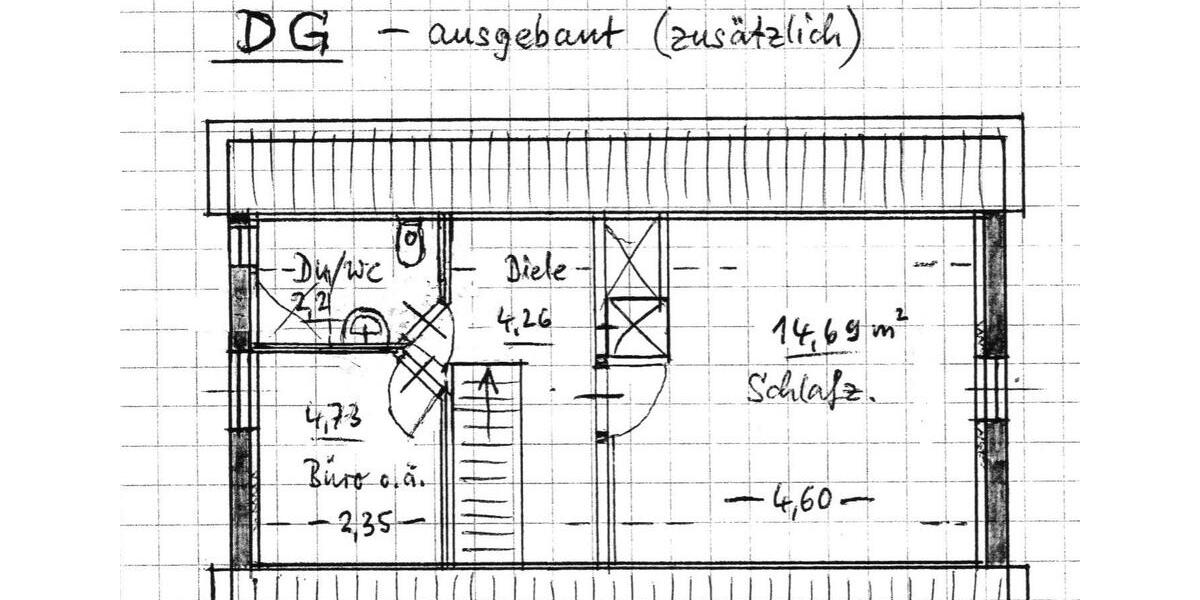 DG - ausgebaut (zusätzlich)
Du/WC
2,2
Diele
4,26
14,69 m²
Schlafz.
4,73
Büro o.ä.
2,35
4,60